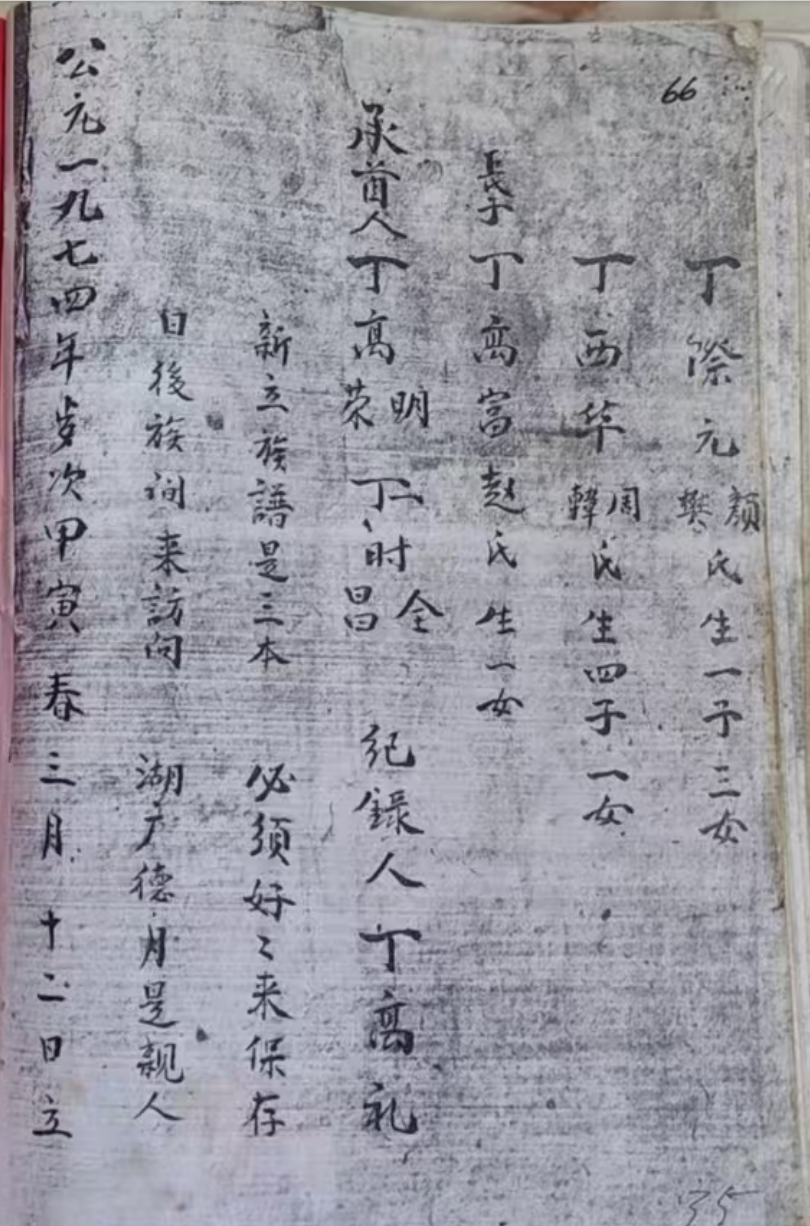 66
丁際元顏樊氏生一子三女
丁西华周韓氏生四子一女
長子丁高富赵氏生一女
承首人丁高明荣 丁时全昌 紀錄人丁高礼
新立族譜是三本 必须好〻来保存
日後族间来訪问 湖广德月是親人
公元一九七四年岁次甲寅春三月十二日立
35